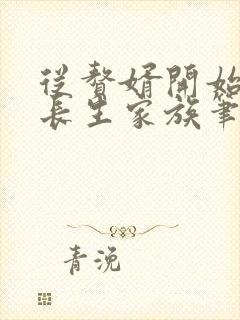 從贅婿開始
長生家族筆
青浼